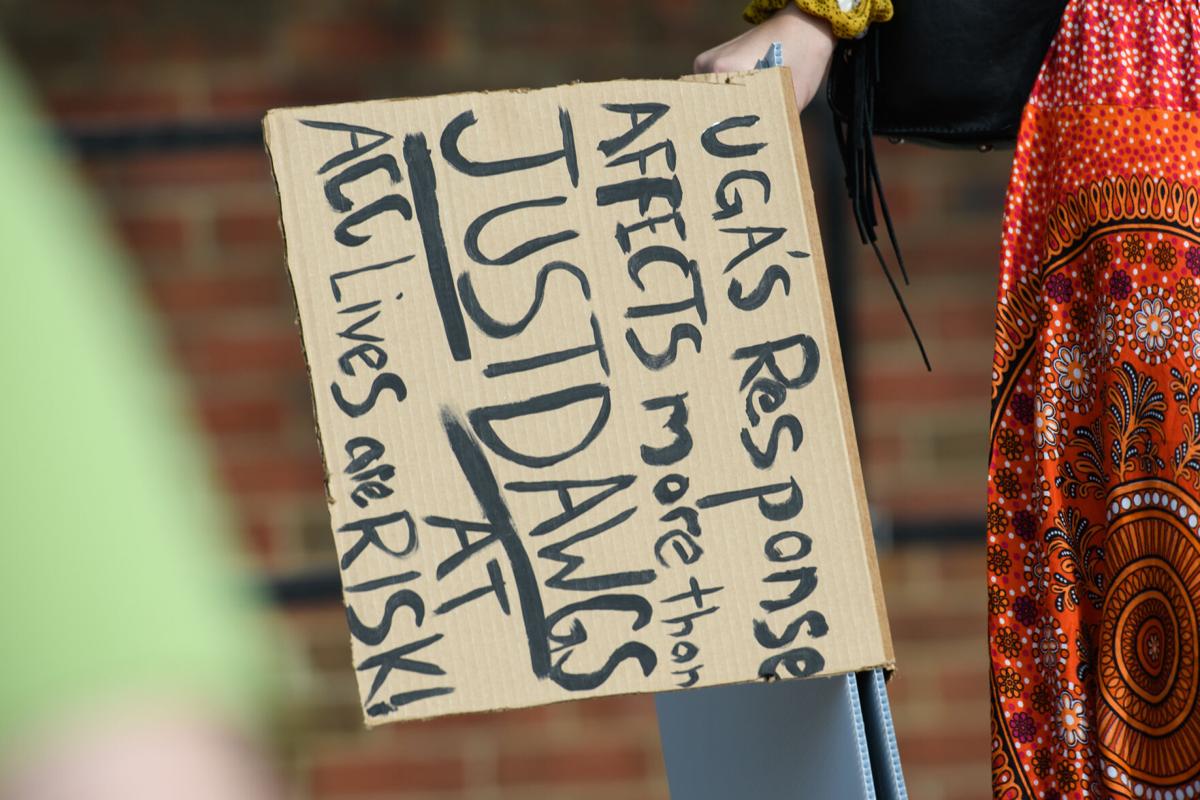 UGA's Response
AFFECTS more than
JUST DAWGS
ALL Lives are AT RISK!